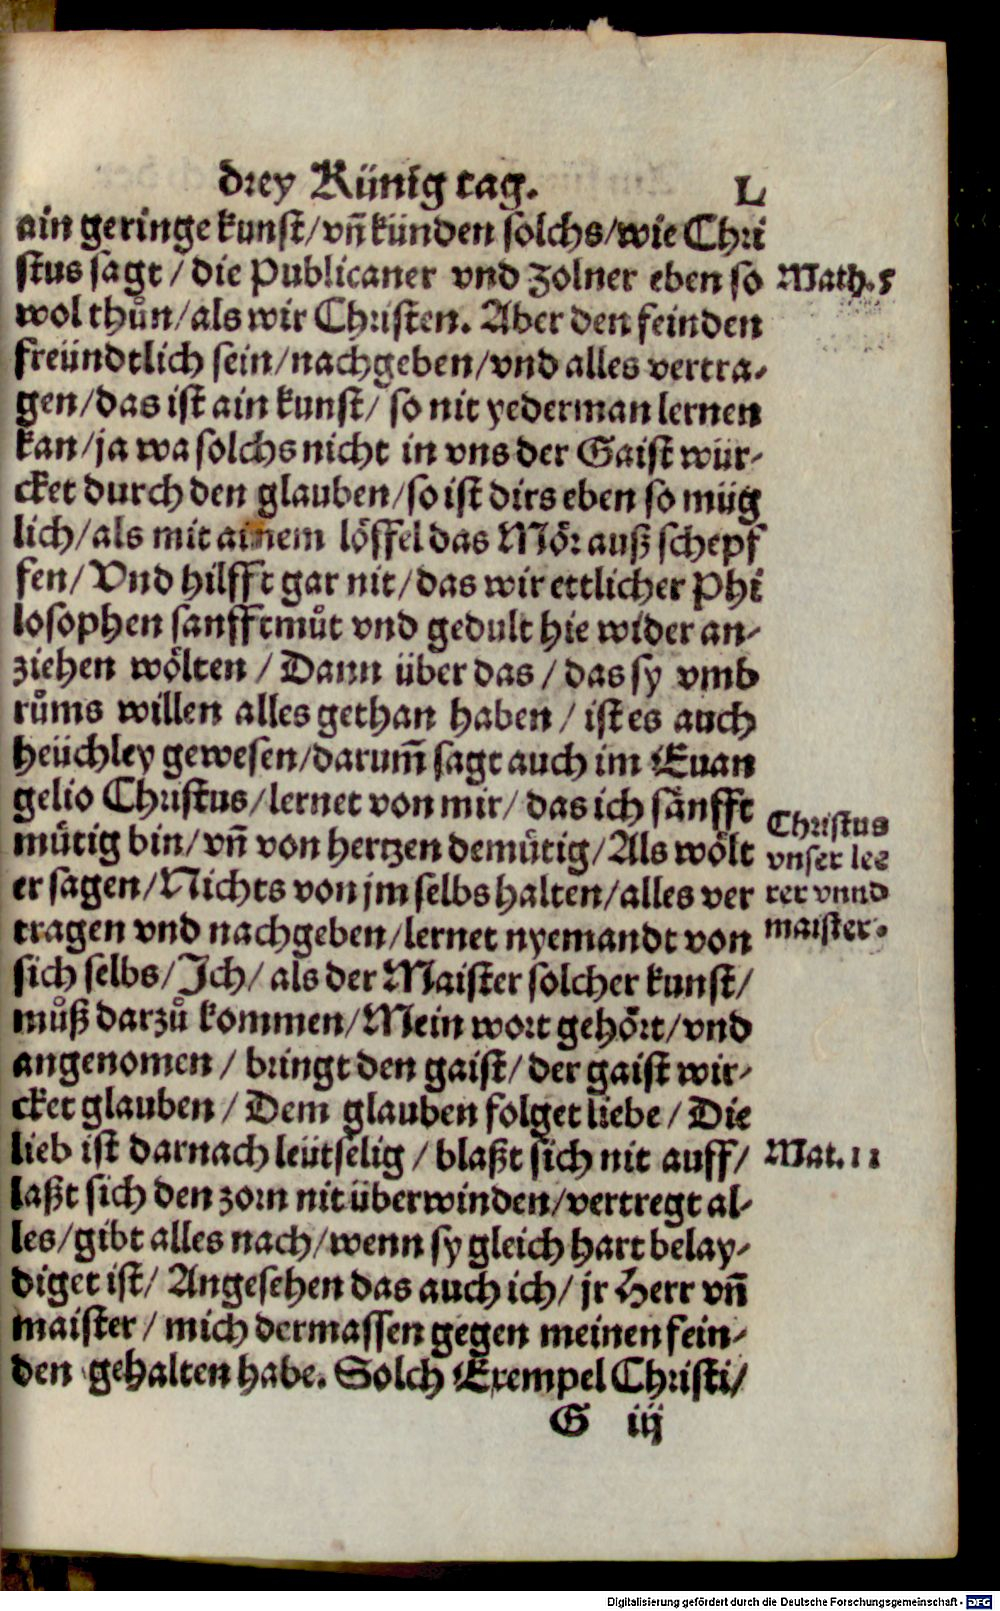 drey Künig tag. L
ain geringe kunst/vñ künden solchs/wie Chri
stus sagt/die Publicaner vnd zolner eben so
Math. 5
wol thůn/als wir Christen. Aber den feinden
freündtlich sein/nachgeben/vnd alles vertra⸗
gen/das ist ain kunst/so nit yederman lernen
kan/ja wa solchs nicht in vns der Gaist wür⸗
cket durch den glauben/so ist dirs eben so müg
lich/als mit ainem löffel das Mör auß schepf
fen/Vnd hilfft gar nit/das wir ettlicher Phi
losophen sanfftmůt vnd gedult hie wider an⸗
ziehen wölten/Dann über das/das sy vmb
růms willen alles gethan haben/ist es auch
heüchley gewesen/darum̃ sagt auch im Euan
gelio Christus/lernet von mir/das ich sänfft
mütig bin/vñ von hertzen demütig/Als wölt
er sagen/Nichts von jm selbs halten/alles ver
tragen vnd nachgeben/lernet nyemandt von
Christus
vnser lee
rer vnnd
maister.
sich selbs/Ich/als der Maister solcher kunst/
můß darzů kommen/Mein wort gehört/vnd
angenomen/bringt den gaist/der gaist wir⸗
cket glauben/Dem glauben folget liebe/Die
lieb ist darnach leütselig/blaßt sich nit auff/
Mat. 11
laßt sich den zorn nit überwinden/vertregt al⸗
les/gibt alles nach/wenn sy gleich hart belay⸗
diget ist/Angesehen das auch ich/jr Herr vñ
maister/mich dermassen gegen meinen fein⸗
den gehalten habe. Solch Exempel Christi/
G iij
Digitalisierung gefördert durch die Deutsche Forschungsgemeinschaft - DFG